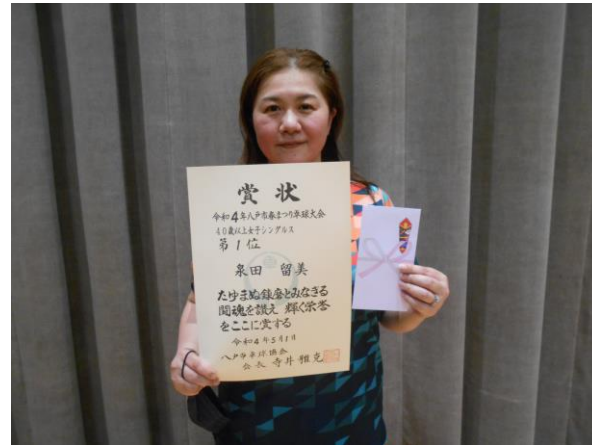 賞状
令和4年八戸市春まつり卓球大会
40歳以上女子シングルス
第1位
泉田 留美
たゆまぬ錬磨とみなぎる
闘魂を讃え 輝く栄誉
をここに賞する
令和4年5月1日
八戸市卓球協会
会長 寺井 雅克